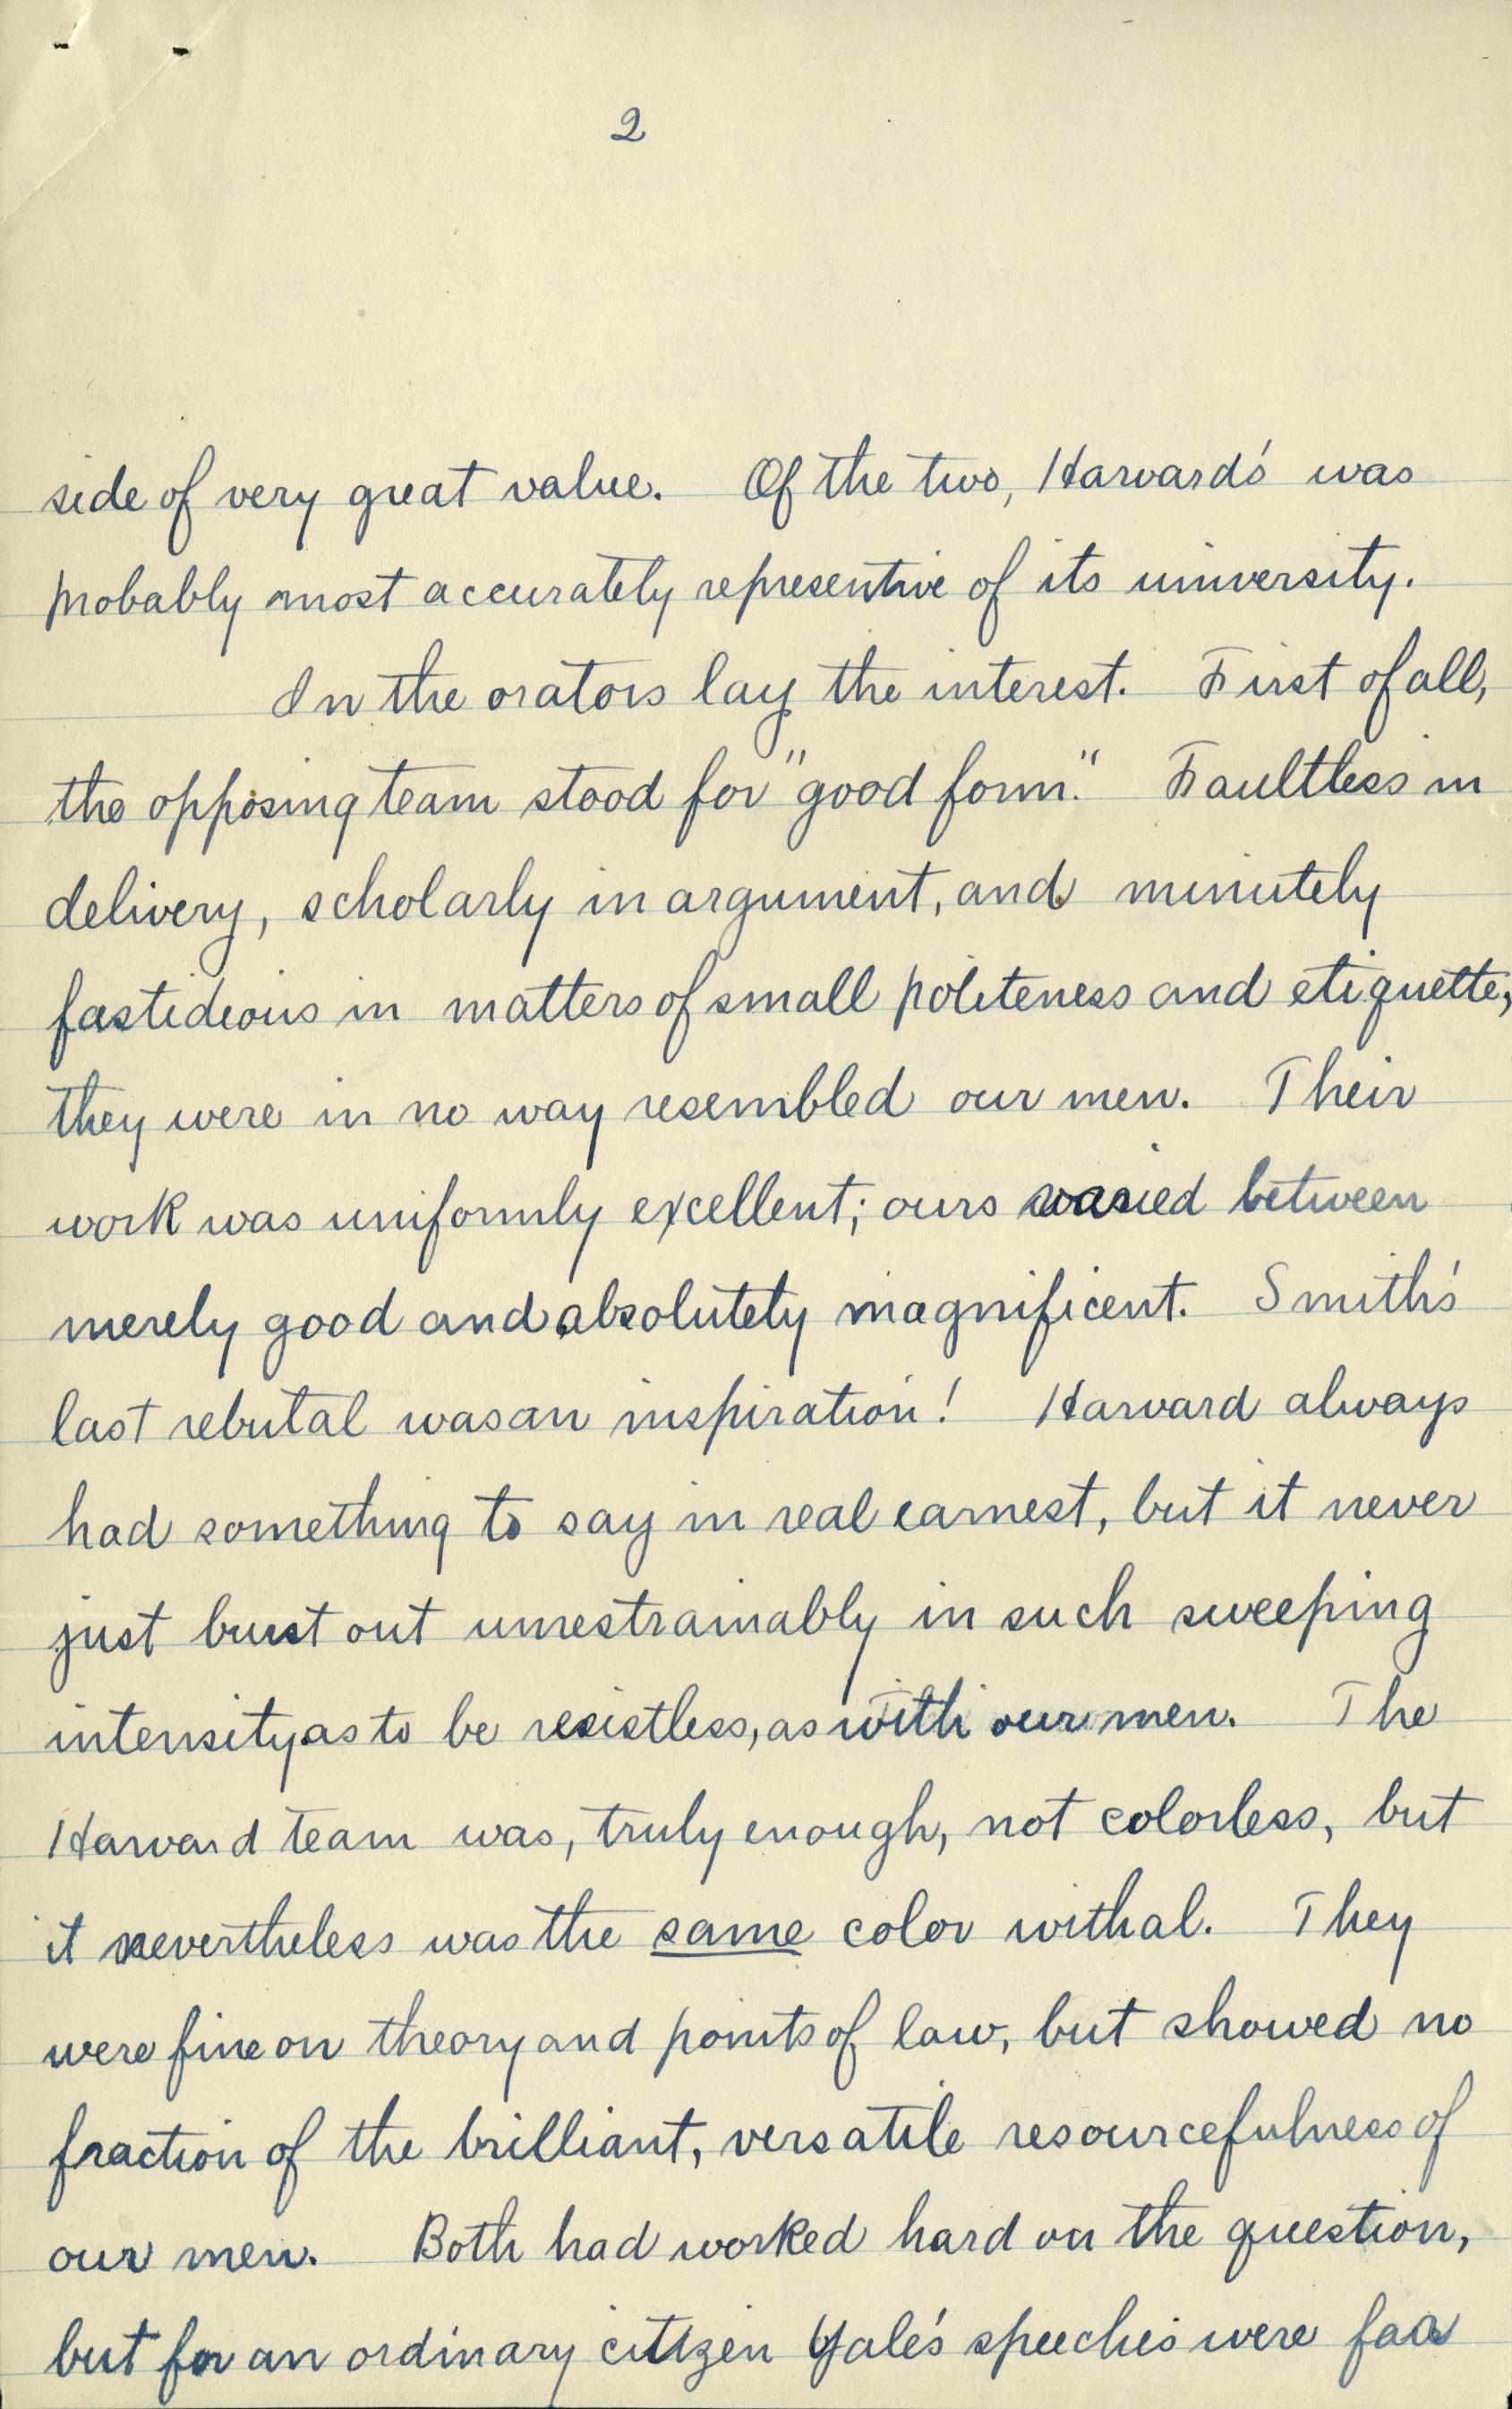 2
side of very great value. Of the two, Harvard's was
probably most accurately representive of its university.
In the orators lay the interest. First of all,
the opposing team stood for "good form." Faultless in
delivery, scholarly in argument, and minutely
fastidious in matters of small politeness and etiquette,
they were in no way resembled our men. Their
work was uniformly excellent; ours varied between
merely good and absolutely magnificent. Smith's
last rebutal was an inspiration! Harvard always
had something to say in real earnest, but it never
just burst out unrestrainably in such sweeping
intensity as to be resistless, as with our men. The
Harvard team was, truly enough, not colorless, but
it nevertheless was the same color withal. They
were fine on theory and points of law, but showed no
fraction of the brilliant, versatile resourcefulness of
our men. Both had worked hard on the question,
but for an ordinary citizen Yale's speeches were far